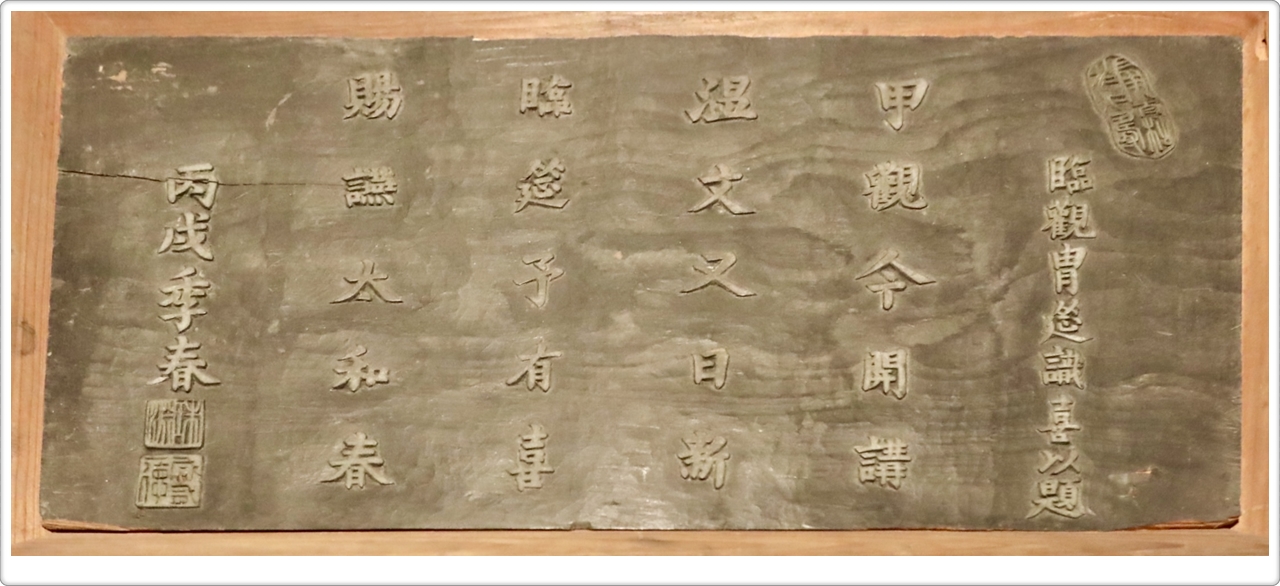 臨觀胄筵識喜以題
甲觀今開講
溫文又日新
臨筵予有喜
賜讌太和春
丙戌季春